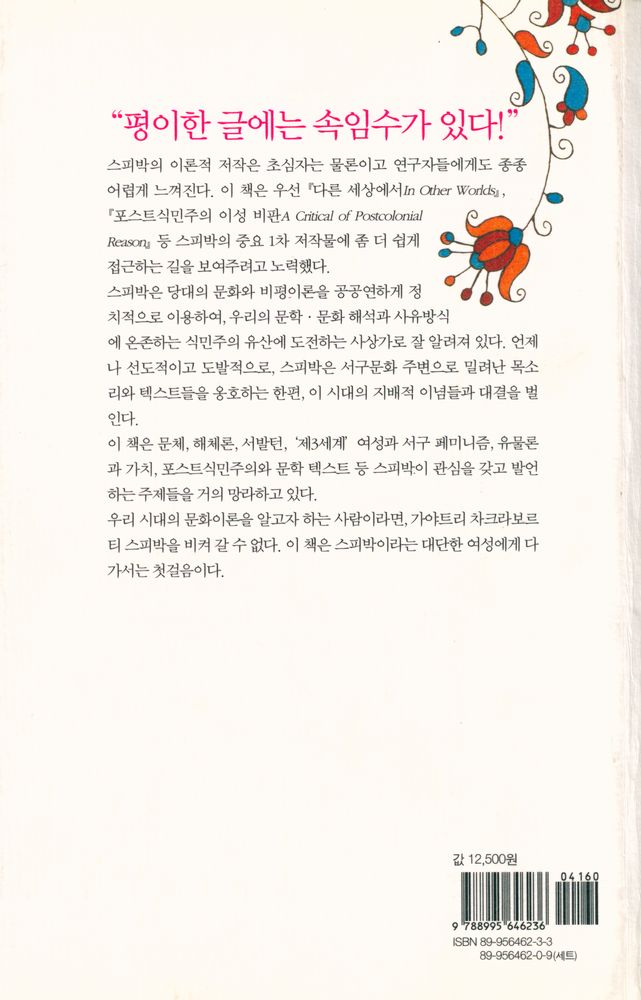 “평이한 글에는 속임수가 있다!”
스피박의 이론적 저작은 초심자는 물론이고 연구자들에게도 종종
어렵게 느껴진다. 이 책은 우선 『다른 세상에서In Other Worlds』,
『포스트식민주의 이성 비판A Critical of Postcolonial
Reason』 등 스피박의 중요 1차 저작물에 좀 더 쉽게
접근하는 길을 보여주려고 노력했다.
스피박은 당대의 문화와 비평이론을 공공연하게 정
치적으로 이용하여, 우리의 문학 · 문화 해석과 사유방식
에 온존하는 식민주의 유산에 도전하는 사상가로 잘 알려져 있다. 언제
나 선도적이고 도발적으로, 스피박은 서구문화 주변으로 밀려난 목소
리와 텍스트들을 옹호하는 한편, 이 시대의 지배적 이념들과 대결을 벌
인다.
이 책은 문체, 해체론, 서발턴, ‘제3세계’ 여성과 서구 페미니즘, 유물론
과 가치, 포스트식민주의와 문학 텍스트 등 스피박이 관심을 갖고 발언
하는 주제들을 거의 망라하고 있다.
우리 시대의 문화이론을 알고자 하는 사람이라면, 가야트리 차크라보르
티 스피박을 비켜 갈 수 없다. 이 책은 스피박이라는 대단한 여성에게 다
가서는 첫걸음이다.
값 12,500원
04160
9 788995 646236
ISBN 89-956462-3-3
89-956462-0-9(세트)